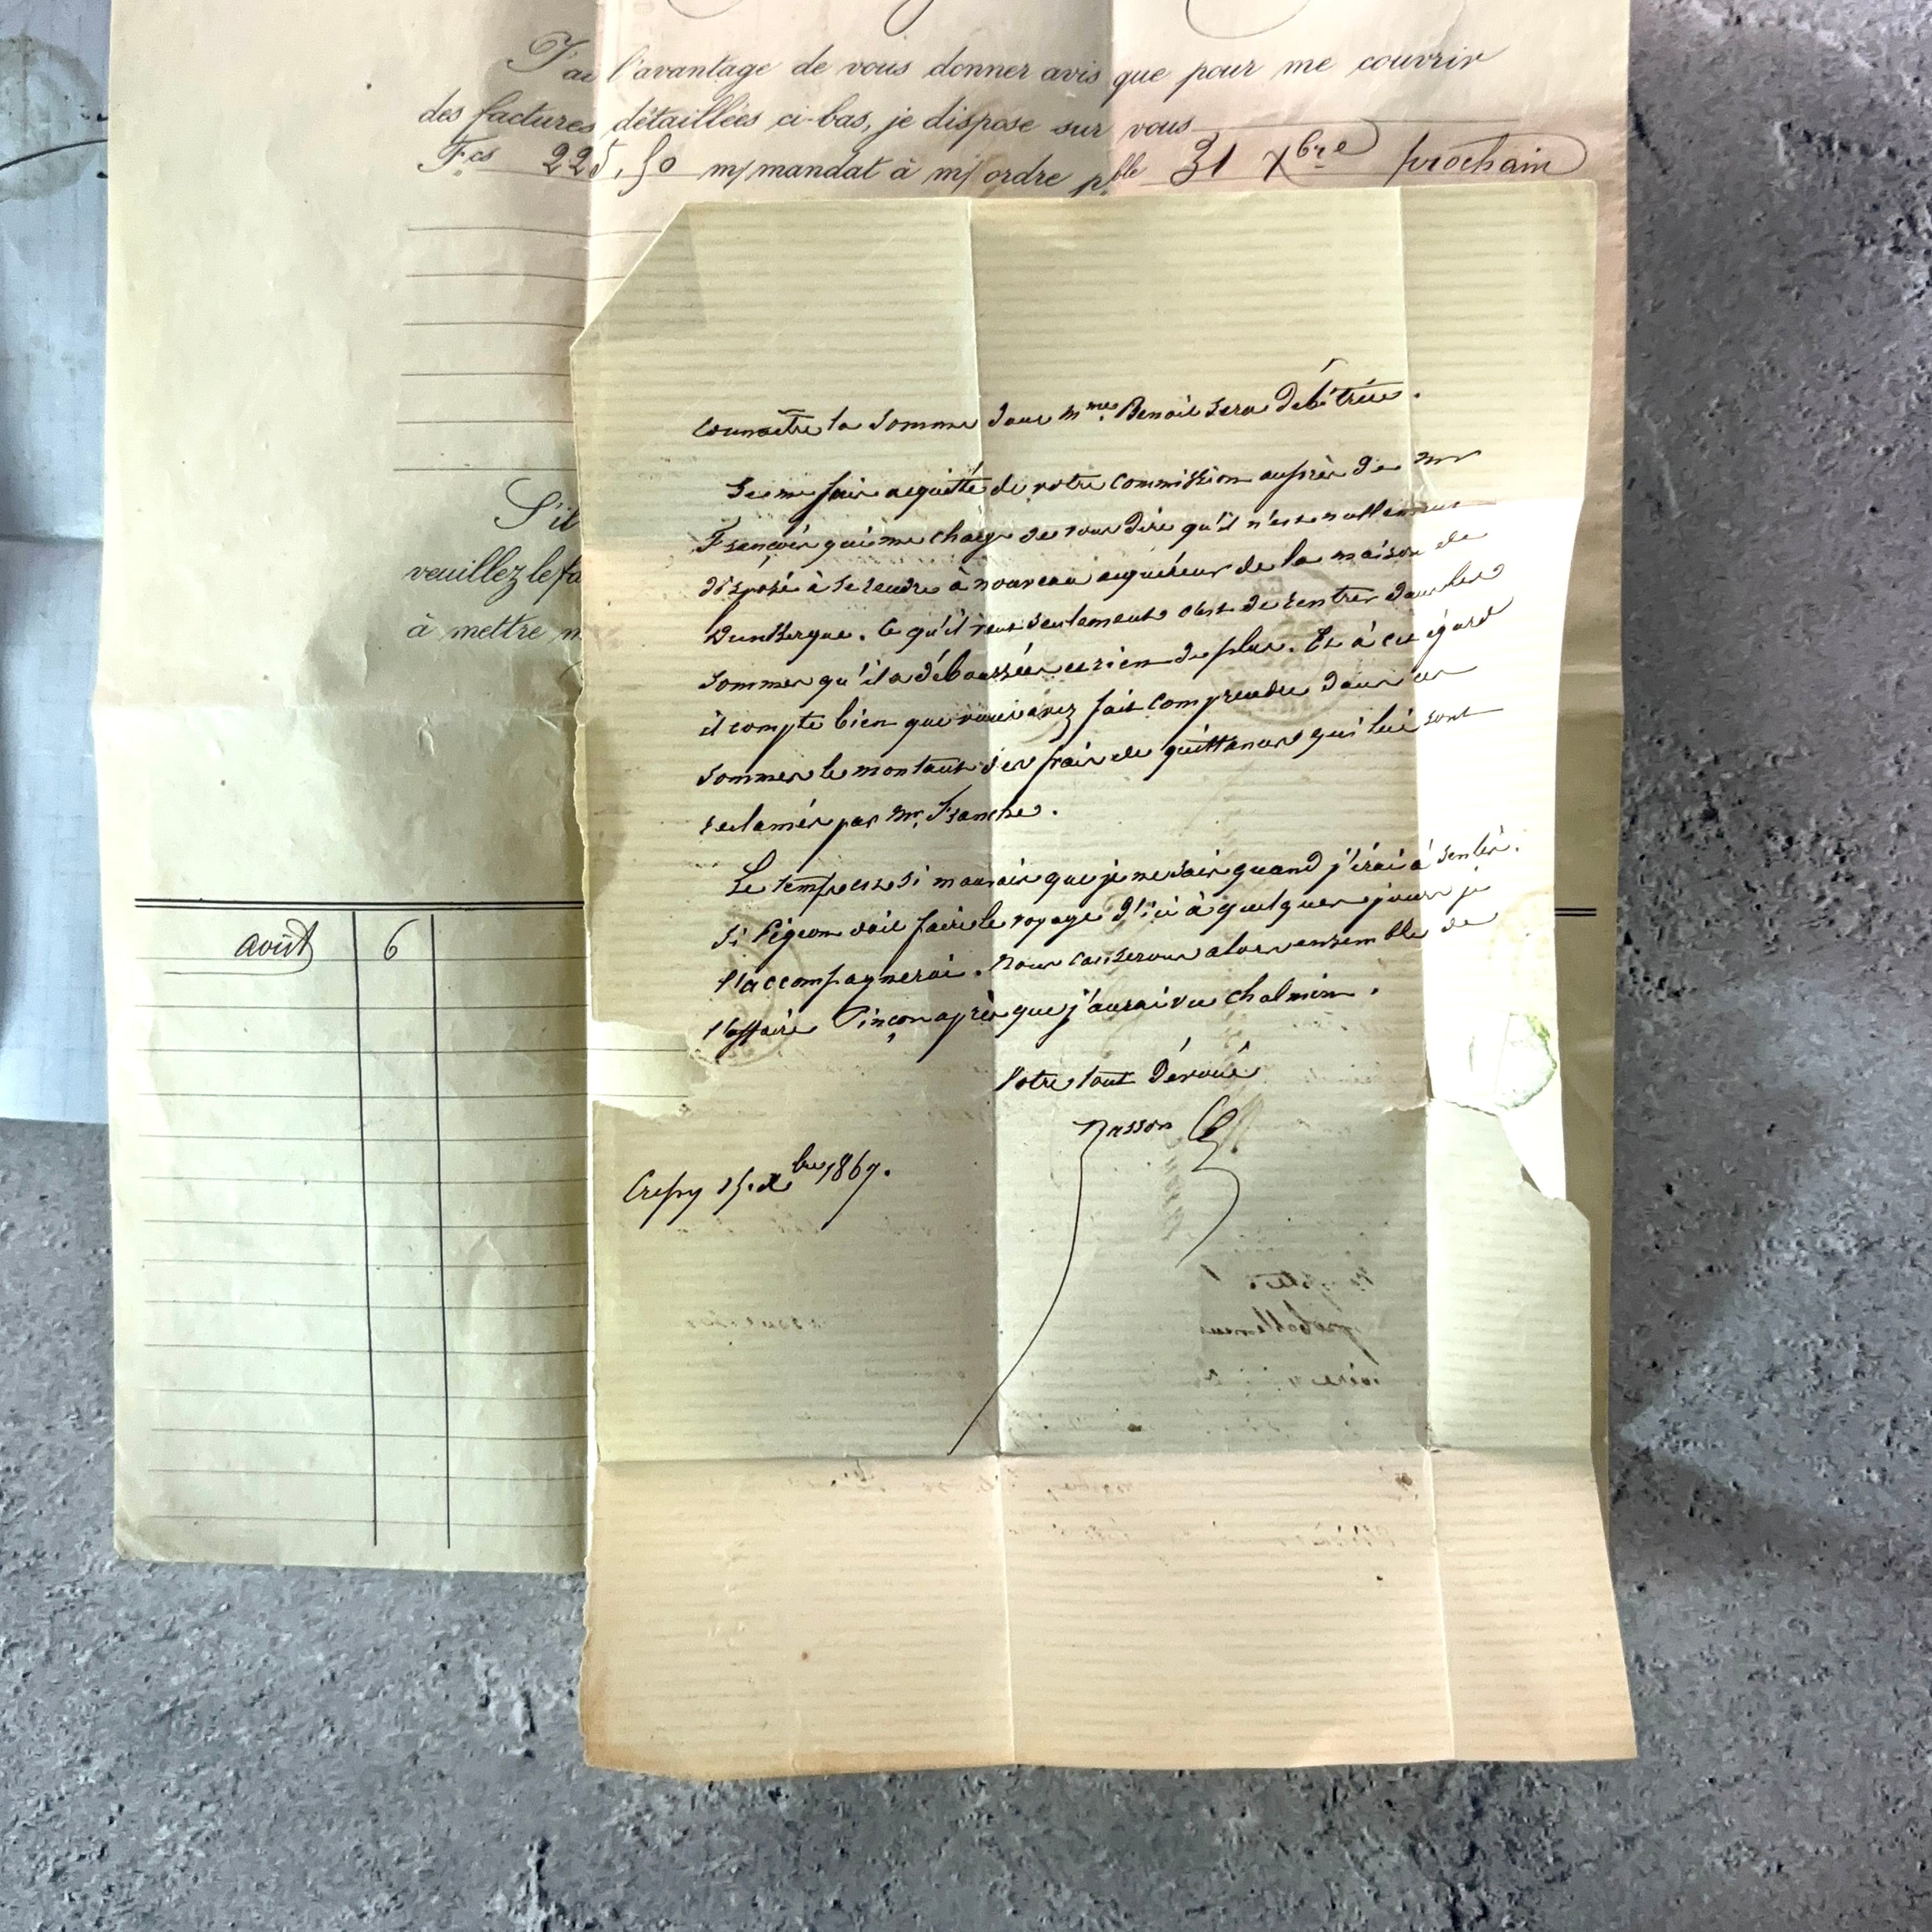 J'ai l'avantage de vous donner avis que pour me couvrir
des factures détaillées ci-bas, je dispose sur vous
Fcs 225,50 m/mandat à m/ordre pble 31 Xbre prochain
S'il
veuillez le fa
à mettre m
août 6
connaître la somme dont Mme Benoit sera débitrice.
Je me suis acquitté de votre commission auprès de Mr
François qui me charge de vous dire qu'il n'est nullement
disposé à se rendre à nouveau acquéreur de la maison de
Dunkerque. Ce qu'il veut seulement c'est de rentrer dans les
sommes qu'il a déboursées et rien de plus. Et à cet égard
il compte bien que vous avez fait comprendre dans ces
sommes le montant des frais de quittances qui lui sont
réclamés par Mr. Franche.
Le temps est si mauvais que je ne sais quand j'irai à Senlis.
Si Pigeon doit faire le voyage d'ici à quelques jours je
l'accompagnerai. Nous causerons alors ensemble de
l'affaire Pinçon après que j'aurai vu Chalmin.
Votre tout dévoué
Masson
Crépy 15 Xbre 1867.